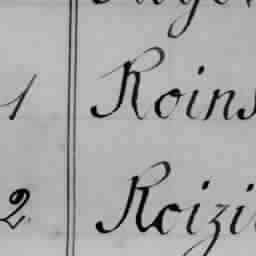 1 Roins
2. Roizi